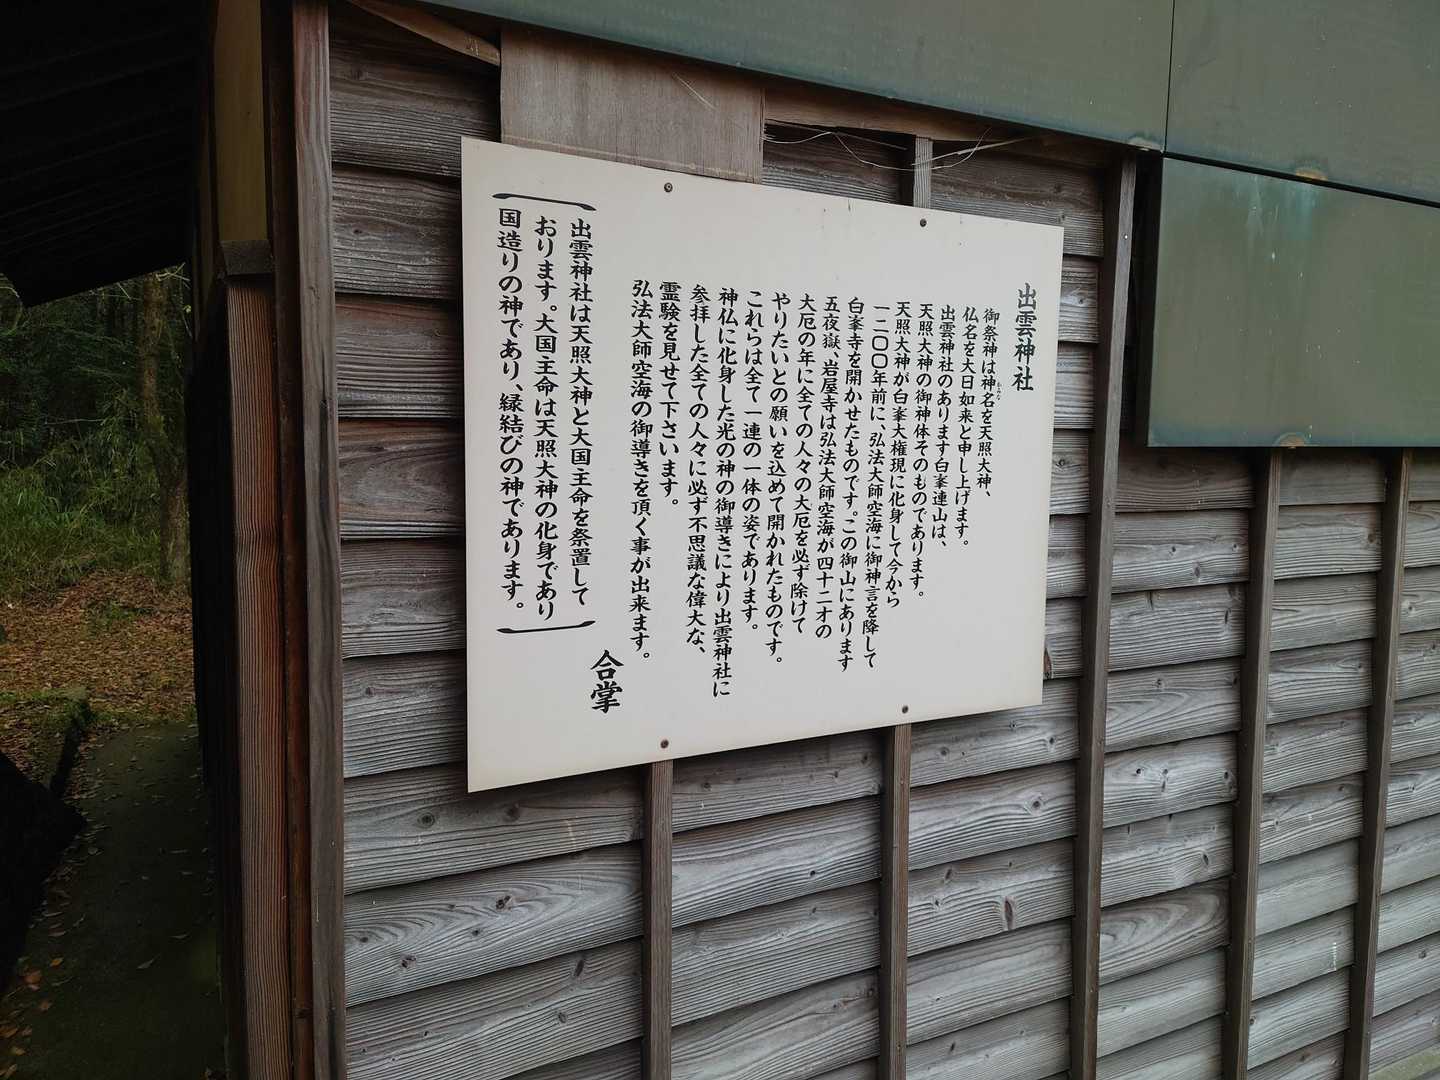 出雲神社
御祭神は神名を天照大神、
かみな
仏名を大日如来と申し上げます。
出雲神社のあります白峯連山は、
天照大神の御神体そのものであります。
天照大神が白峯大権現に化身して今から
一二〇〇年前に、弘法大師空海に御神言を降して
白峯寺を開かせたものです。この御山にあります
五夜嶽、岩屋寺は弘法大師空海が四十二才の
大厄の年に全ての人々の大厄を必ず除けて
やりたいとの願いを込めて開かれたものです。
これらは全て一連の一体の姿であります。
神仏に化身した光の神の御導きにより出雲神社に
参拝した全ての人々に必ず不思議な偉大な、
霊験を見せて下さいます。
弘法大師空海の御導きを頂く事が出来ます。
合掌
出雲神社は天照大神と大国主命を祭置して
おります。大国主命は天照大神の化身であり
国造りの神であり、縁結びの神であります。